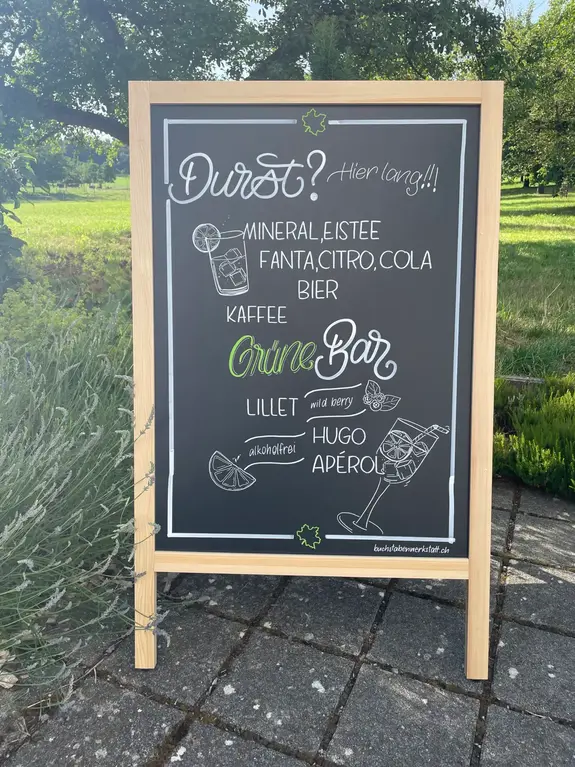 Durst? Hier lang!!!
MINERAL, EISTEE
FANTA, CITRO, COLA
BIER
KAFFEE
Grüne Bar
LILLET wild berry
HUGO
alkoholfrei
APÉROL
buchstabenwerkstatt.ch